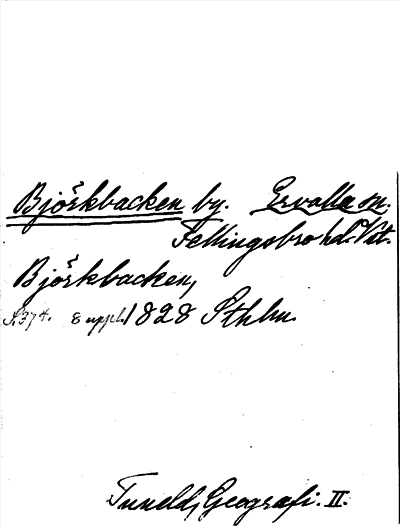 Björkbacken by. Ervalla sn.
Fellingsbro hd. Vstm.
Björkbacken,
S. 374. 8 uppl. 1828 Sthlm
Tuneld, Geografi. II.